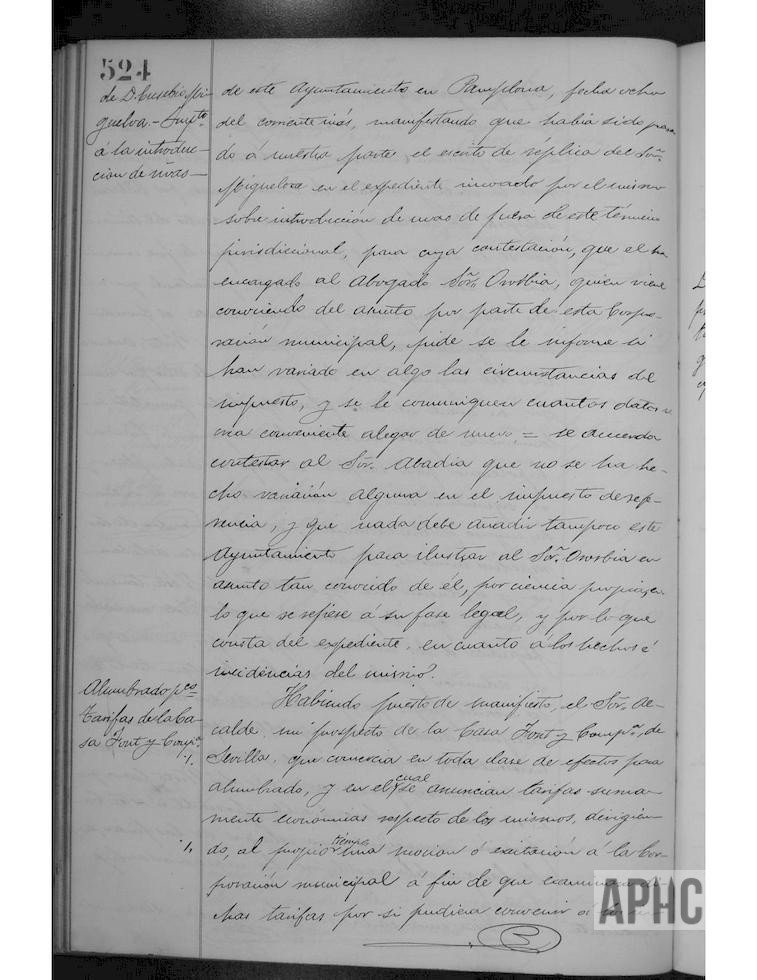 524
de D. Eusebio Mi-
guelva. - Impto
á la introduc-
cion de uvas -
de este Ayuntamiento en Pamplona, fecha ocho
del corriente més, manifestando que habia sido pasa-
do á nuestra parte el escrito de réplica del Sor.
Migueloa en el expediente incoado por el mismo
sobre introducción de uvas de fuera de este término
jurisdiccional, para cuya contestación, que el ha
encargado al Abogado Sor. Orosbia, quien viene
conociendo del asunto por parte de esta Corpo-
ración municipal, pide se le informe si
han variado en algo las circunstancias del
impuesto, y se le comuniquen cuantos datos
crea conveniente alegar de nuevo = se acuerda
contestar al Sor. Abadia que no se ha he-
cho variación alguna en el impuesto de refe-
rencia, y que nada debe añadir tampoco este
Ayuntamiento para ilustrar al Sor. Orosbia en
asunto tan conocido de él, por ciencia propia, en
lo que se refiere á su fase legal, y por lo que
consta del expediente, en cuanto á los hechos é
incidencias del mismo.
Alumbrado pco
Tarifas de la Ca-
sa Font y Compa.
Habiendo puesto de manifiesto, el Sor. Al-
calde, un prospecto de la Casa Font y Compa., de
Sevilla, que comercia en toda clase de efectos para
alumbrado, y en el cual se anuncian tarifas suma-
mente económicas respecto de los mismos, dirigien-
do, al propio tiempo una mocion ó exitación á la Cor-
poración municipal á fin de que examine di-
chas tarifas por si pudiera convenir á los
APHC